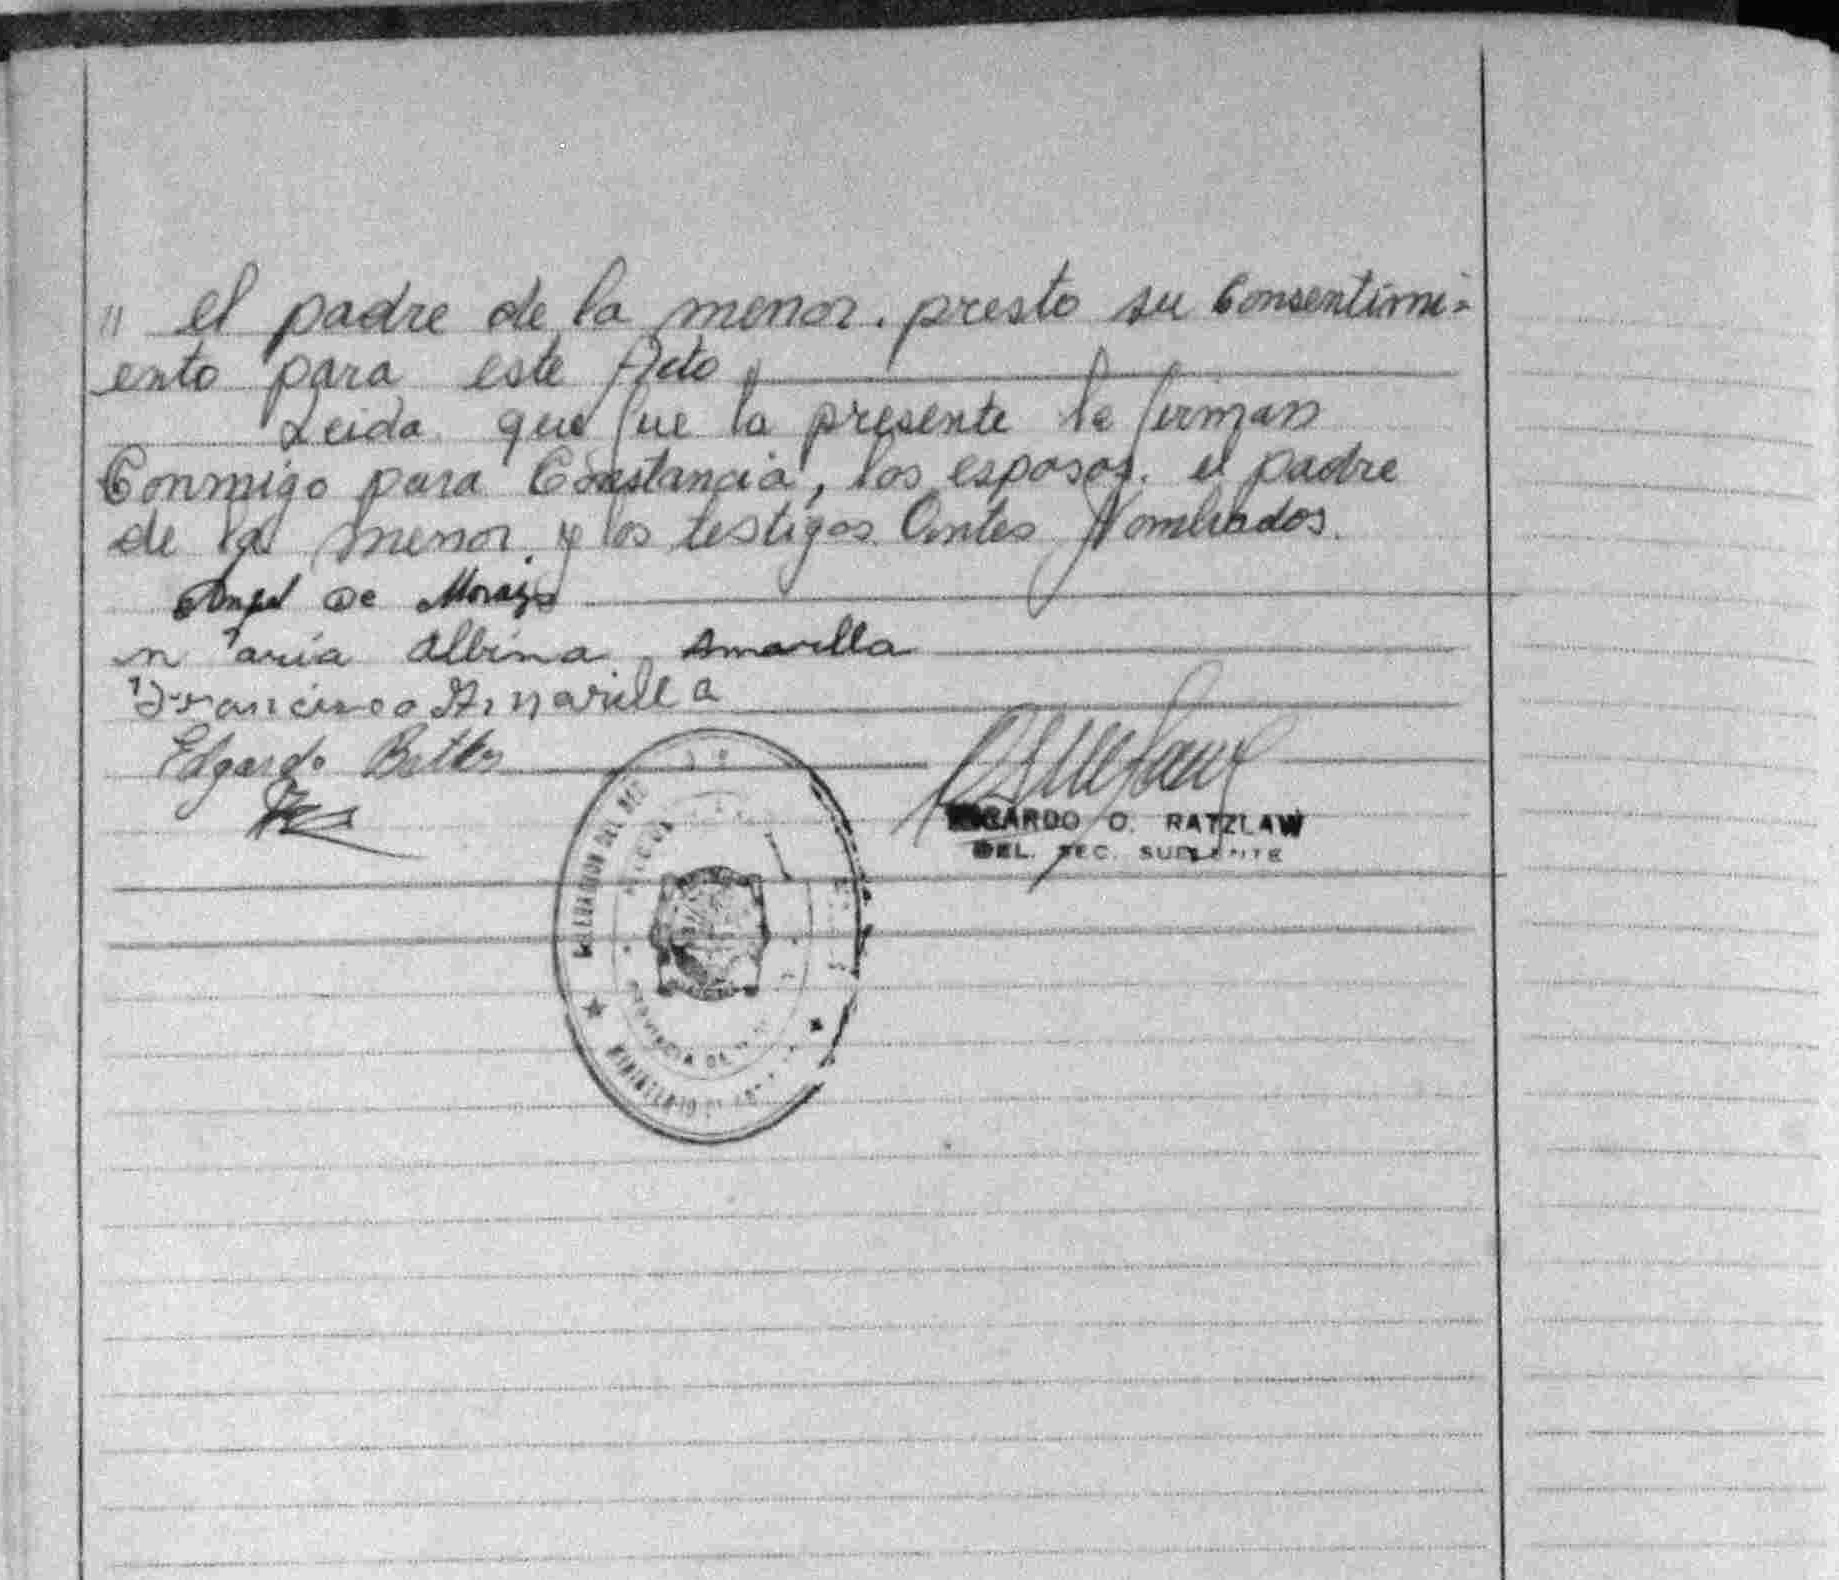 " el padre de la menor. presto su Consentimi=
ento para este Acto.
Leida que fue la presente la firman
Conmigo para Constancia, los esposos. el padre
de la menor. y los testigos Antes Nombrados.
Angel De Morais
Maria Albina Amarilla
Francisco Amarilla
Edgardo
RICARDO O. RATZLAW
DEL. SEC. SUPLENTE
DEL
PROVINCIA DE
MINISTERIO